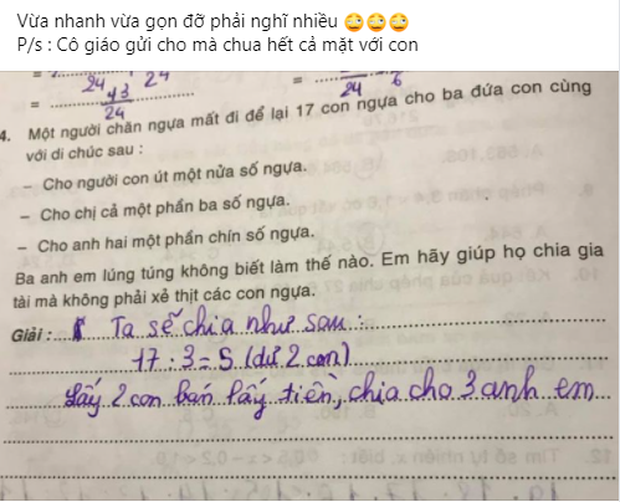 Vừa nhanh vừa gọn đỡ phải nghĩ nhiều 🙄🙄🙄
P/s : Cô giáo gửi cho mà chua hết cả mặt với con
= 24 24
= 43 24
= 24 6
4. Một người chăn ngựa mất đi để lại 17 con ngựa cho ba đứa con cùng
với di chúc sau :
– Cho người con út một nửa số ngựa.
– Cho chị cả một phần ba số ngựa.
– Cho anh hai một phần chín số ngựa.
Ba anh em lúng túng không biết làm thế nào. Em hãy giúp họ chia gia
tài mà không phải xẻ thịt các con ngựa.
Giải : Ta sẽ chia như sau :
17 : 3 = 5 (dư 2 con)
Lấy 2 con bán lấy tiền, chia cho 3 anh em